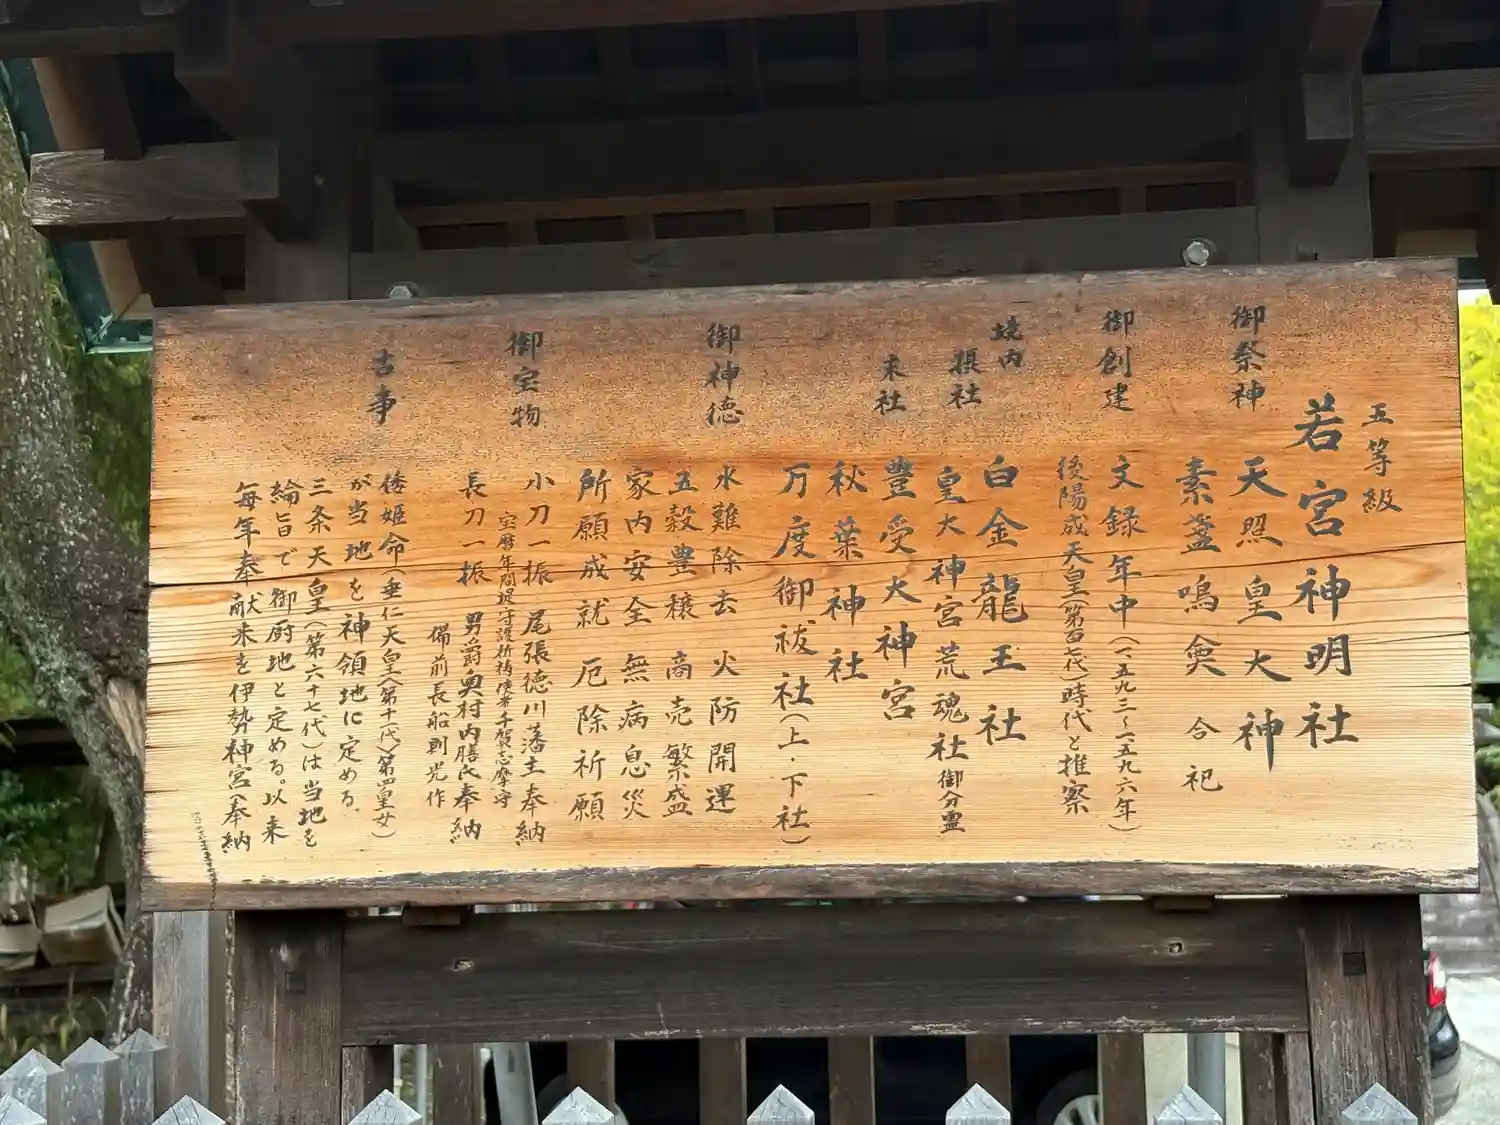 五等級
若宮神明社
御祭神
天照皇大神
素盞嗚尊 合祀
御創建
文録年中(一五九三~一五九六年)
後陽成天皇(第百七代)時代と推察
境内
摂社
白金龍王社
皇大神宮荒魂社 御分霊
末社
豊受大神宮
秋葉神社
万度御祓社(上・下社)
御神徳
水難除去 火防開運
五穀豊穣 商売繁盛
家内安全 無病息災
所願成就 厄除祈願
御宝物
小刀一振 尾張徳川藩主奉納
宝暦年間堤守護祈祷 千賀志摩守
長刀一振 男爵奥村内膳氏奉納
備前長船則光作
古事
倭姫命(垂仁天皇(第十一代)第四皇女)
が当地を神領地に定める。
三条天皇(第六十七代)は当地を
綸旨で御厨地と定める。以来
毎年奉献米を伊勢神宮へ奉納